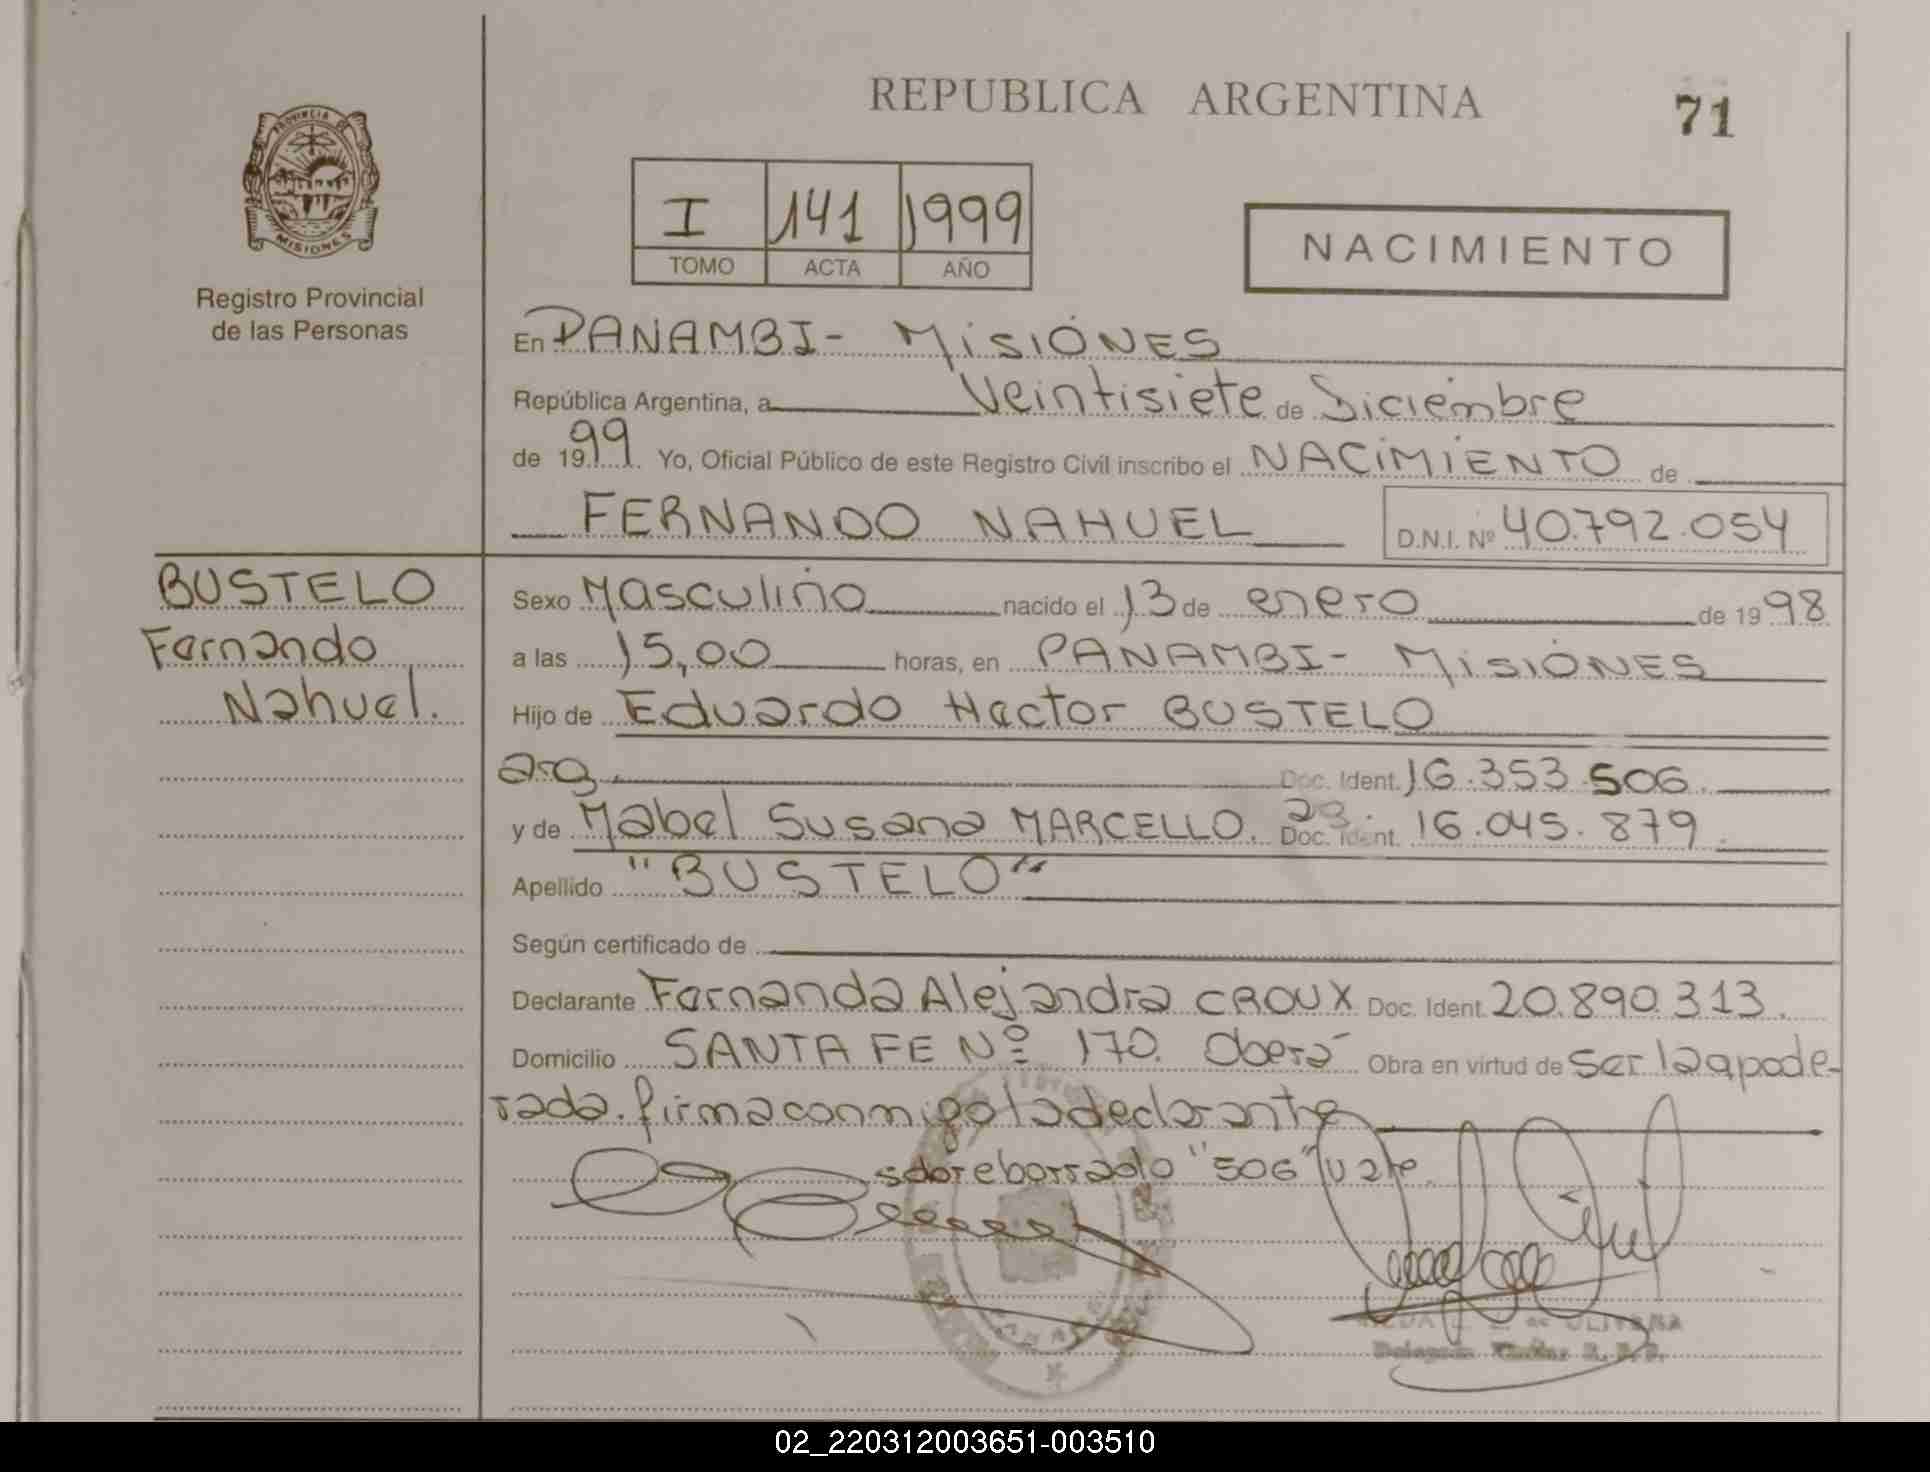 REPUBLICA ARGENTINA
71
PROVINCIA DE
MISIONES
Registro Provincial
de las Personas
I 141 1999
TOMO ACTA AÑO
NACIMIENTO
En PANAMBI- MISIONES
República Argentina, a Veintisiete de Diciembre
de 1999. Yo, Oficial Público de este Registro Civil inscribo el NACIMIENTO de
FERNANDO NAHUEL D.N.I. Nº 40.792.054
BUSTELO
Fernando
Nahuel.
Sexo Masculino nacido el 13 de enero de 1998
a las 15,00 horas, en PANAMBI- MISIONES
Hijo de Eduardo Hector BUSTELO
arg. Doc. Ident. 16.353.506.
y de Mabel Susana MARCELLO. Doc. Ident. 16.045.879.
Apellido "BUSTELO"
Según certificado de
Declarante Fernanda Alejandra CROUX Doc. Ident. 20.890.313.
Domicilio SANTA FE Nº 170. Oberá Obra en virtud de ser la apode-
rada. firma conmigo la declarante
sobreborrado "506" Vale.
02_220312003651-003510